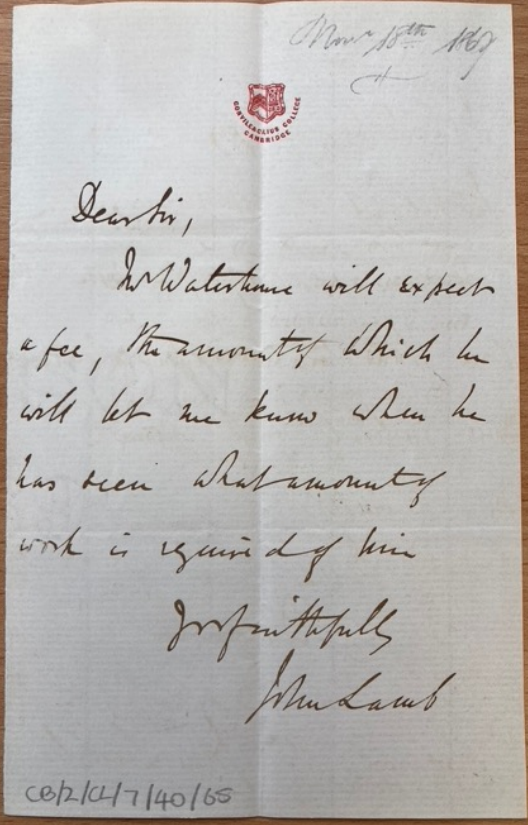 Novr 18th 1867
GONVILLE & CAIUS COLLEGE
CAMBRIDGE
Dear Sir,
Mr Waterhouse will expect
a fee, the amount of which he
will let me know when he
has seen what amount of
work is required of him
Yrs faithfully
John Lamb
CB/2/CL/7/40/65